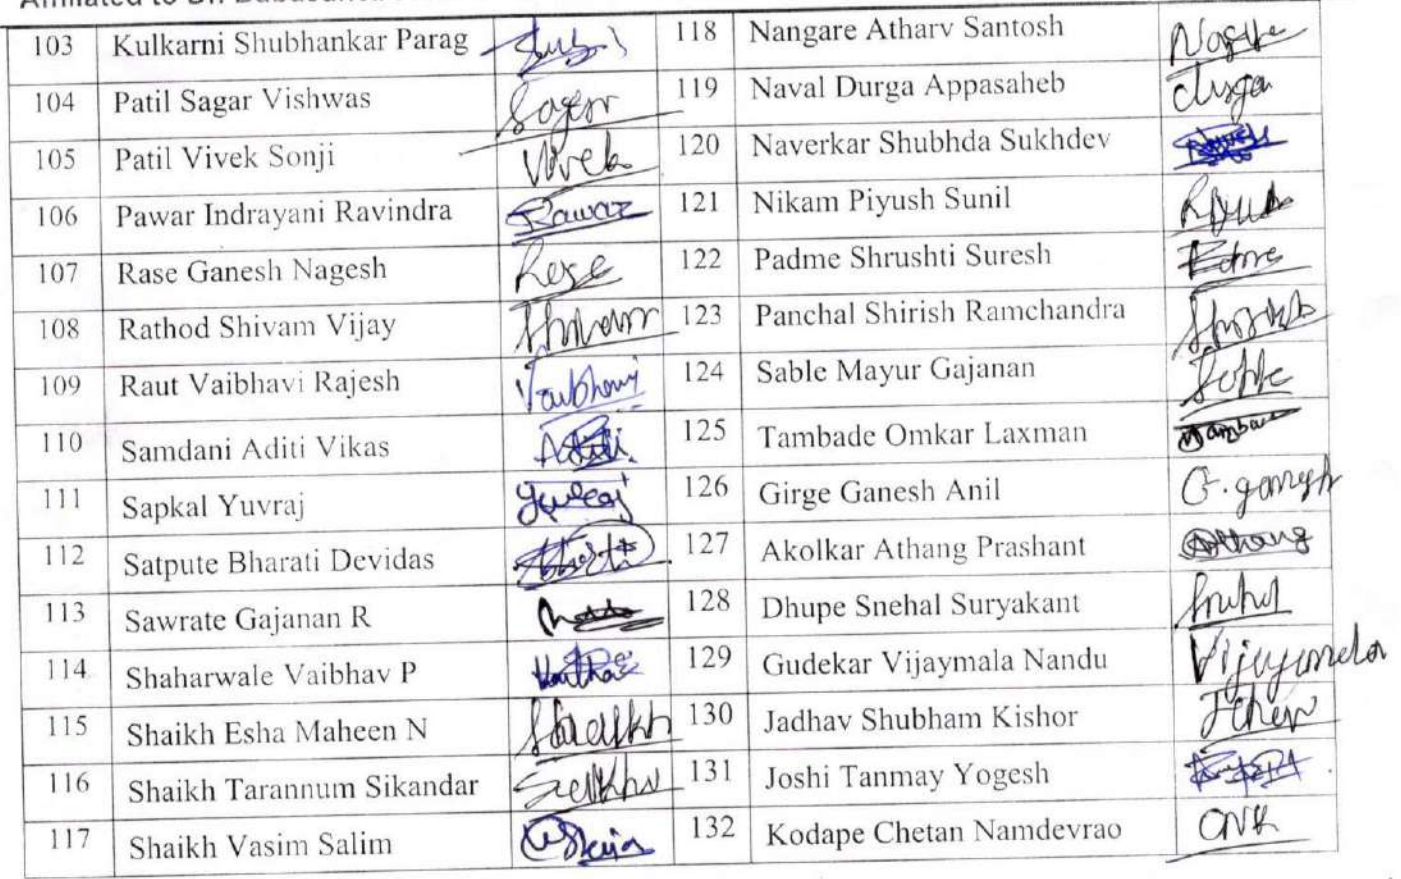 Affiliated to Dr. Babasaheb
103 Kulkarni Shubhankar Parag 118 Nangare Atharv Santosh
104 Patil Sagar Vishwas Sagar 119 Naval Durga Appasaheb durga
105 Patil Vivek Sonji Vivek 120 Naverkar Shubhda Sukhdev
106 Pawar Indrayani Ravindra Pawar 121 Nikam Piyush Sunil
107 Rase Ganesh Nagesh Rase 122 Padme Shrushti Suresh
108 Rathod Shivam Vijay Shivam 123 Panchal Shirish Ramchandra
109 Raut Vaibhavi Rajesh Vaibhavi 124 Sable Mayur Gajanan Sable
110 Samdani Aditi Vikas Aditi 125 Tambade Omkar Laxman
111 Sapkal Yuvraj Yuvraj 126 Girge Ganesh Anil G. ganesh
112 Satpute Bharati Devidas 127 Akolkar Athang Prashant Athang
113 Sawrate Gajanan R 128 Dhupe Snehal Suryakant
114 Shaharwale Vaibhav P 129 Gudekar Vijaymala Nandu Vijaymala
115 Shaikh Esha Maheen N Shaikh 130 Jadhav Shubham Kishor
116 Shaikh Tarannum Sikandar 131 Joshi Tanmay Yogesh
117 Shaikh Vasim Salim 132 Kodape Chetan Namdevrao CNK